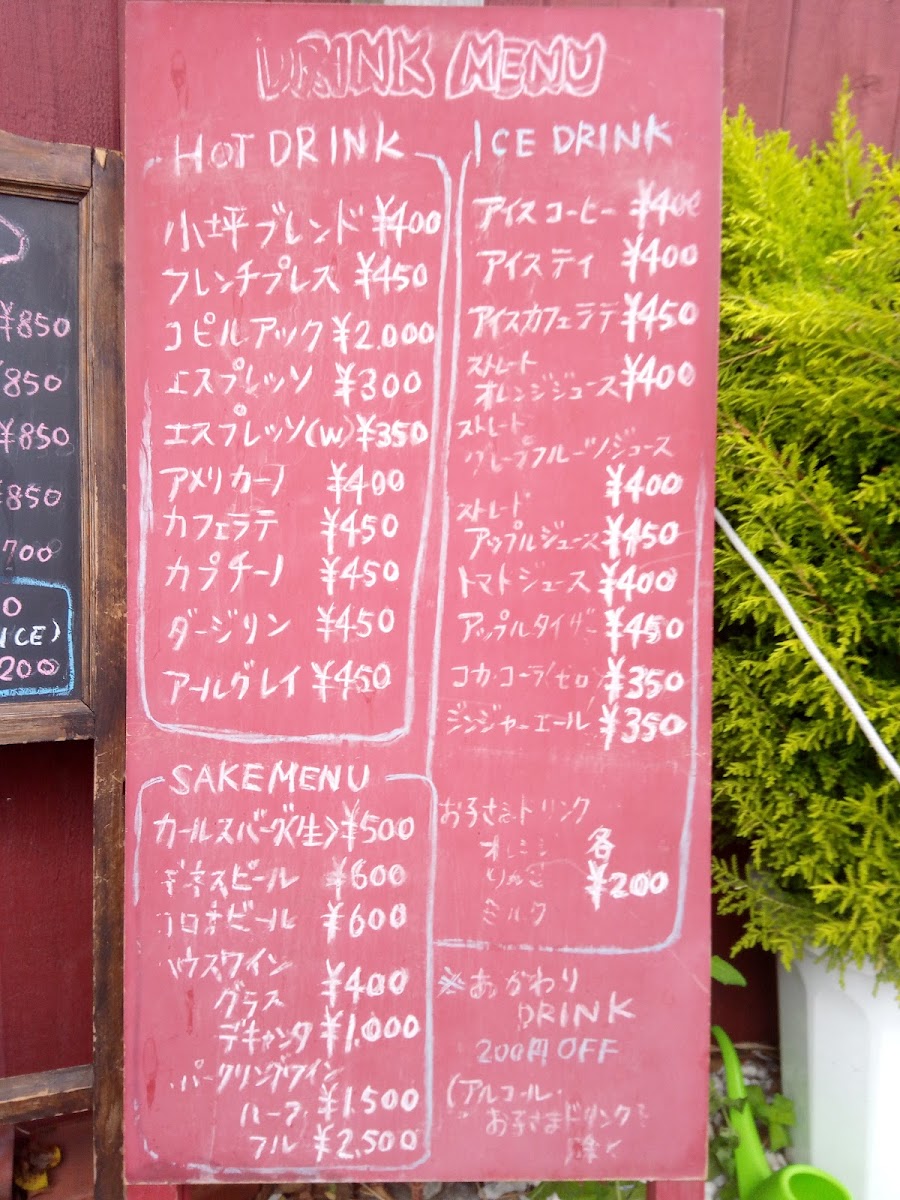 DRINK MENU
HOT DRINK
小坪ブレンド ¥400
フレンチプレス ¥450
コピルアック ¥2.000
エスプレッソ ¥300
エスプレッソ(W) ¥350
アメリカーノ ¥400
カフェラテ ¥450
カプチーノ ¥450
ダージリン ¥450
アールグレイ ¥450
SAKE MENU
カールスバーグ(生) ¥500
ビール ¥600
ビール ¥600
ハウスワイン
グラス ¥400
デキャンタ ¥1.000
スパークリングワイン
ハーフ ¥1.500
フル ¥2,500
ICE DRINK
アイスコーヒー ¥400
アイスティ ¥400
アイスカフェラテ ¥450
ストレート
オレンジジュース ¥400
ストレート
グレープフルーツジュース
¥400
ストレート
アップルジュース ¥450
トマトジュース ¥400
アップルタイザー ¥450
コカ・コーラ(ゼロ) ¥350
ジンジャーエール ¥350
お子さまドリンク
オレンジ 各
りんご ¥200
ミルク
※おかわり
DRINK
200円OFF
(アルコール・
お子さまドリンク
除く
¥850
¥850
¥850
¥850
700
0
ICE)
200